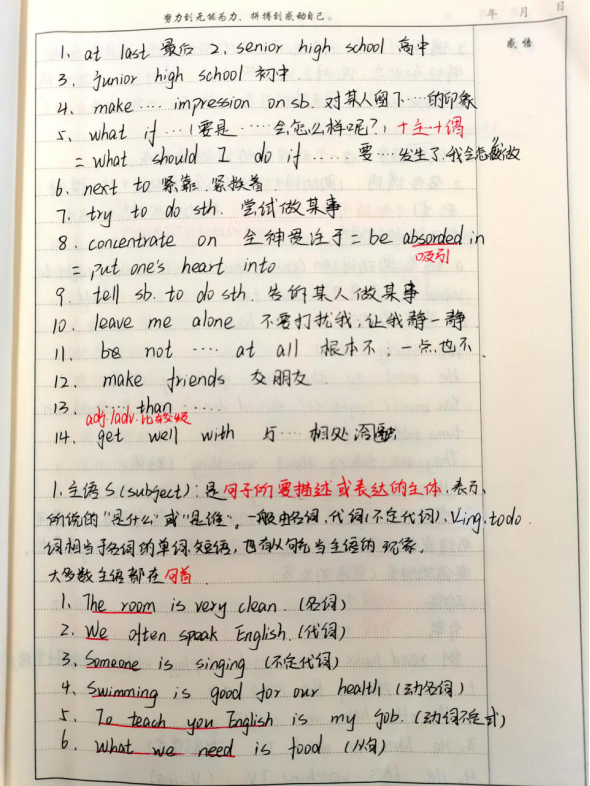 努力到无能为力，拼搏到感动自己。
年 月 日
感悟
1. at last 最后 2. senior high school 高中
3. junior high school 初中
4. make .... impression on sb. 对某人留下...的印象
5. what if ...(要是.....会怎么样呢?) +主+谓
= what should I do if ..... 要...发生了,我会怎做
6. next to 紧靠.紧挨着
7. try to do sth. 尝试做某事
8. concentrate on 全神贯注于 = be absorded in
吸引
= put one's heart into
9. tell sb. to do sth. 告诉某人做某事
10. leave me alone 不要打扰我,让我静一静
11. be not .... at all 根本不;一点也不
12. make friends 交朋友
13. ......than ......
adj./adv.比较级
14. get well with 与... 相处
1.主语S(subject):是句子所要描述或表达的主体.表示
所说的"是什么"或"是谁"。一般由名词.代词(不定代词).Ving.to do.
词相当于名词的单词.短语,也有从句充当主语的现象,
大多数主语都在句首.
1. The room is very clean. (名词)
2. We often speak English. (代词)
3. Someone is singing (不定代词)
4. Swimming is good for our health (动名词)
5. To teach you English is my job. (动词不定式)
6. What we need is food (从句)